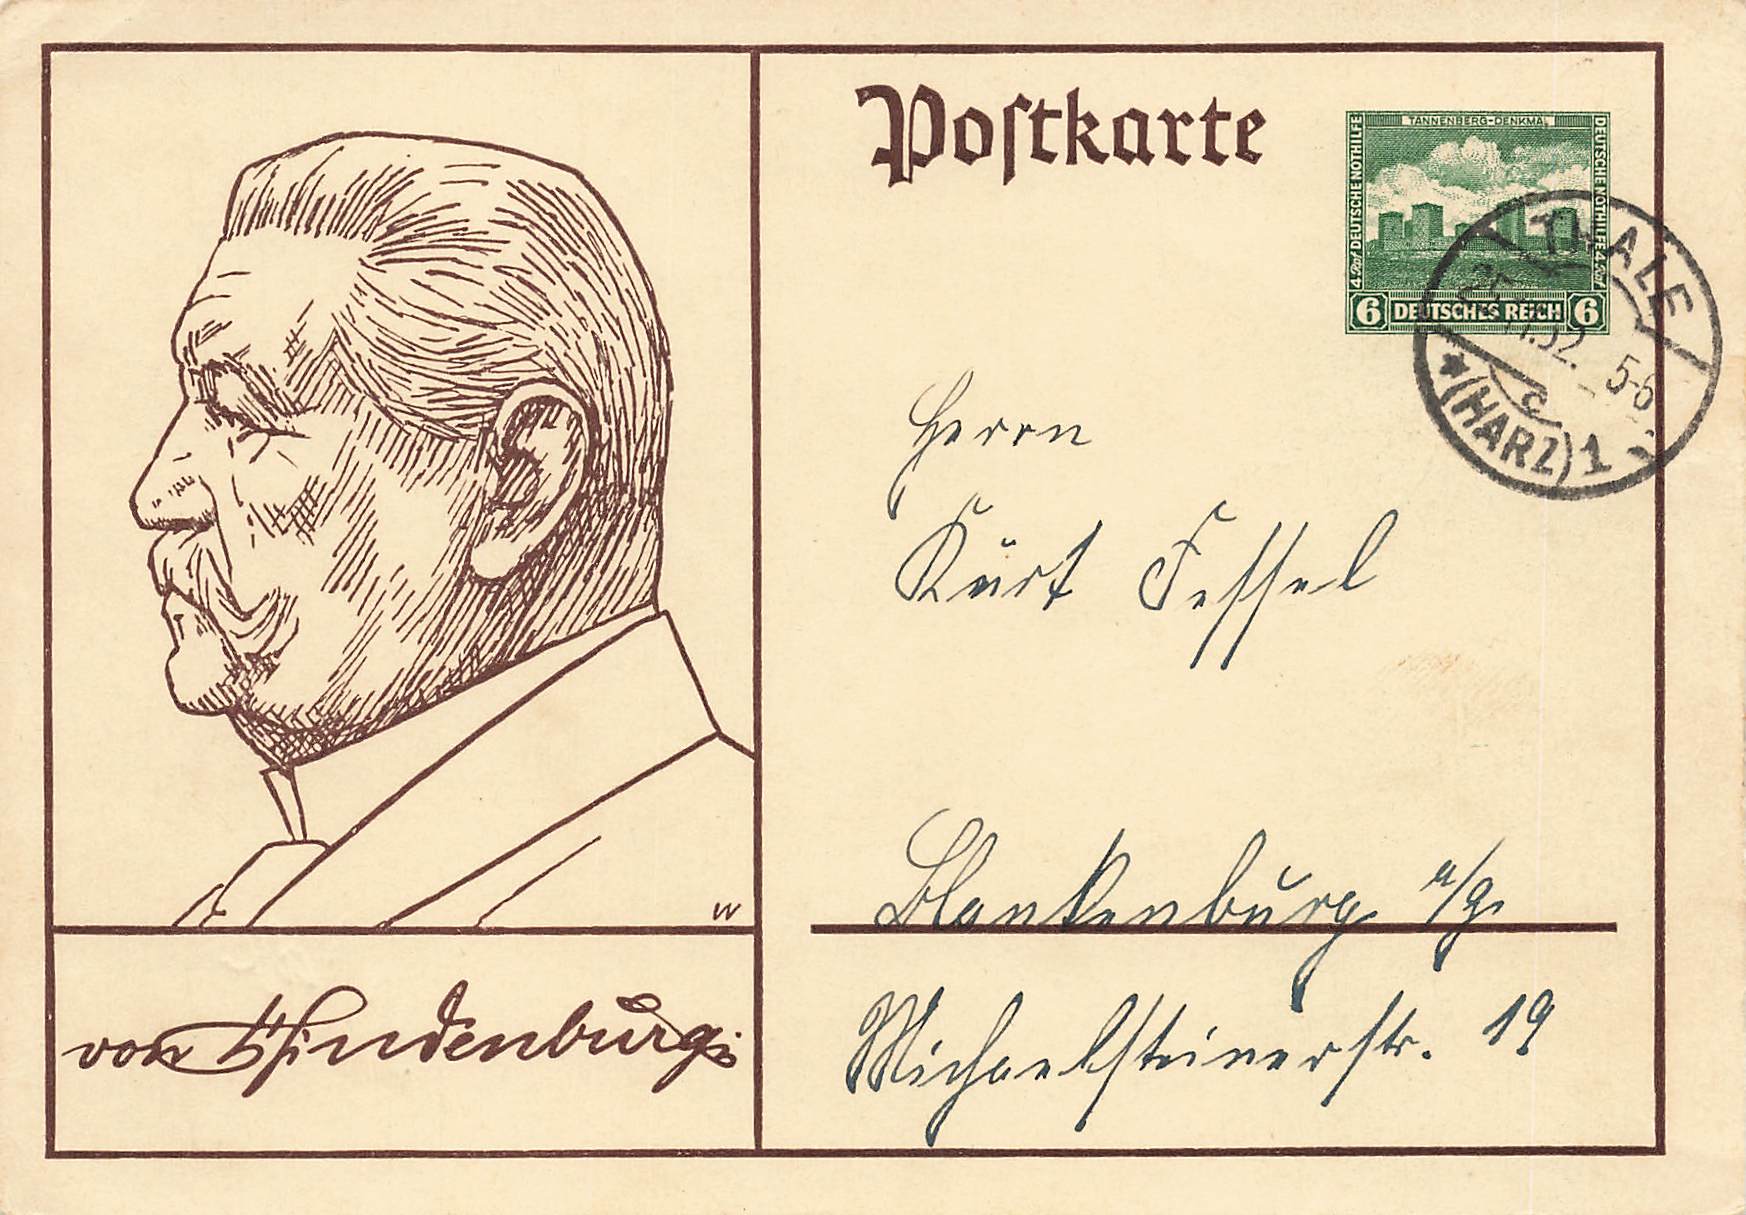 Postkarte
TANNENBERG-DENKMAL
4 Rpf DEUTSCHE NOTHILFE
DEUTSCHE NOTHILFE 4 Rpf
6 DEUTSCHES REICH 6
THALE
32. 5-6
c
(HARZ) 1
Herrn
Kurt Fessel
Blankenburg a/H.
Michaelsteinerstr. 19
W
von Hindenburg